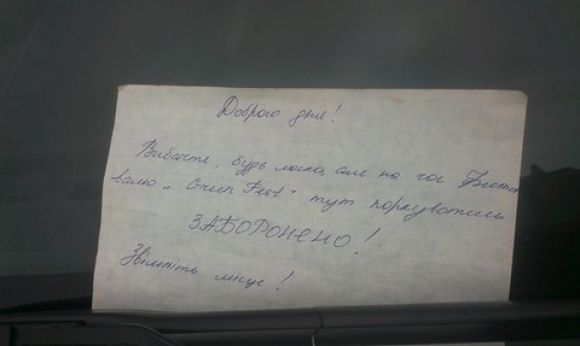 Доброго дня!
Вибачте, будь ласка, але на час фести
валю „ Fest" тут паркуватись
ЗАБОРОНЕНО!
Звільніть місце!